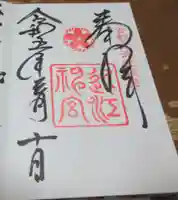 奉拝
近江
神宮
令和五年
十日